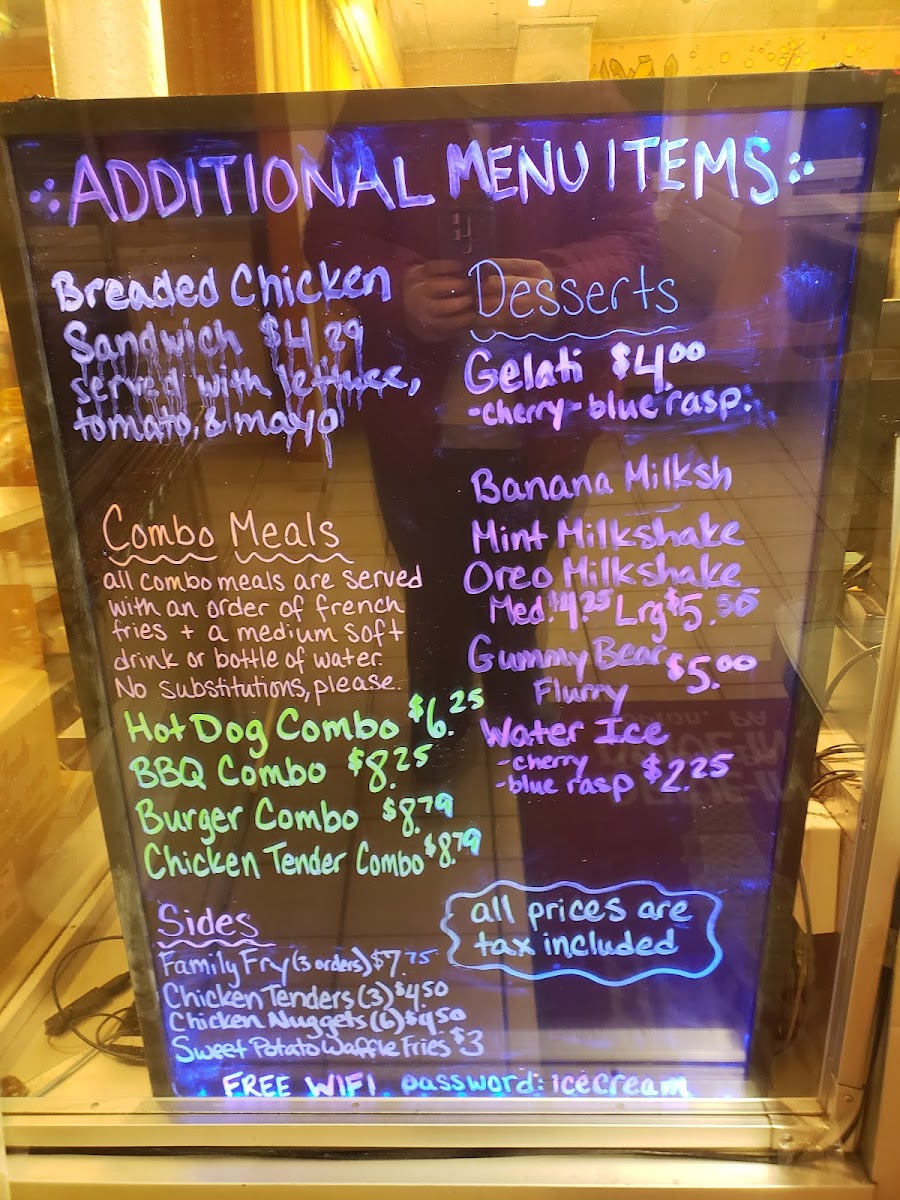 ADDITIONAL MENU ITEMS
Breaded Chicken
Sandwich $4.29
served with lettuce,
tomato, & mayo
Combo Meals
all combo meals are served
with an order of french
fries + a medium soft
drink or bottle of water.
No substitutions, please.
Hot Dog Combo $6.25
BBQ Combo $8.25
Burger Combo $8.79
Chicken Tender Combo $8.79
Sides
Family Fry (3 orders) $7.75
Chicken Tenders (3) $4.50
Chicken Nuggets (6) $4.50
Sweet Potato Waffle Fries $3
Desserts
Gelati $4.00
-cherry -blue rasp.
Banana Milksh
Mint Milkshake
Oreo Milkshake
Med. $4.25 Lrg $5.50
Gummy Bear
Flurry $5.00
Water Ice
-cherry
-blue rasp $2.25
all prices are
tax included
FREE WIFI password: icecream